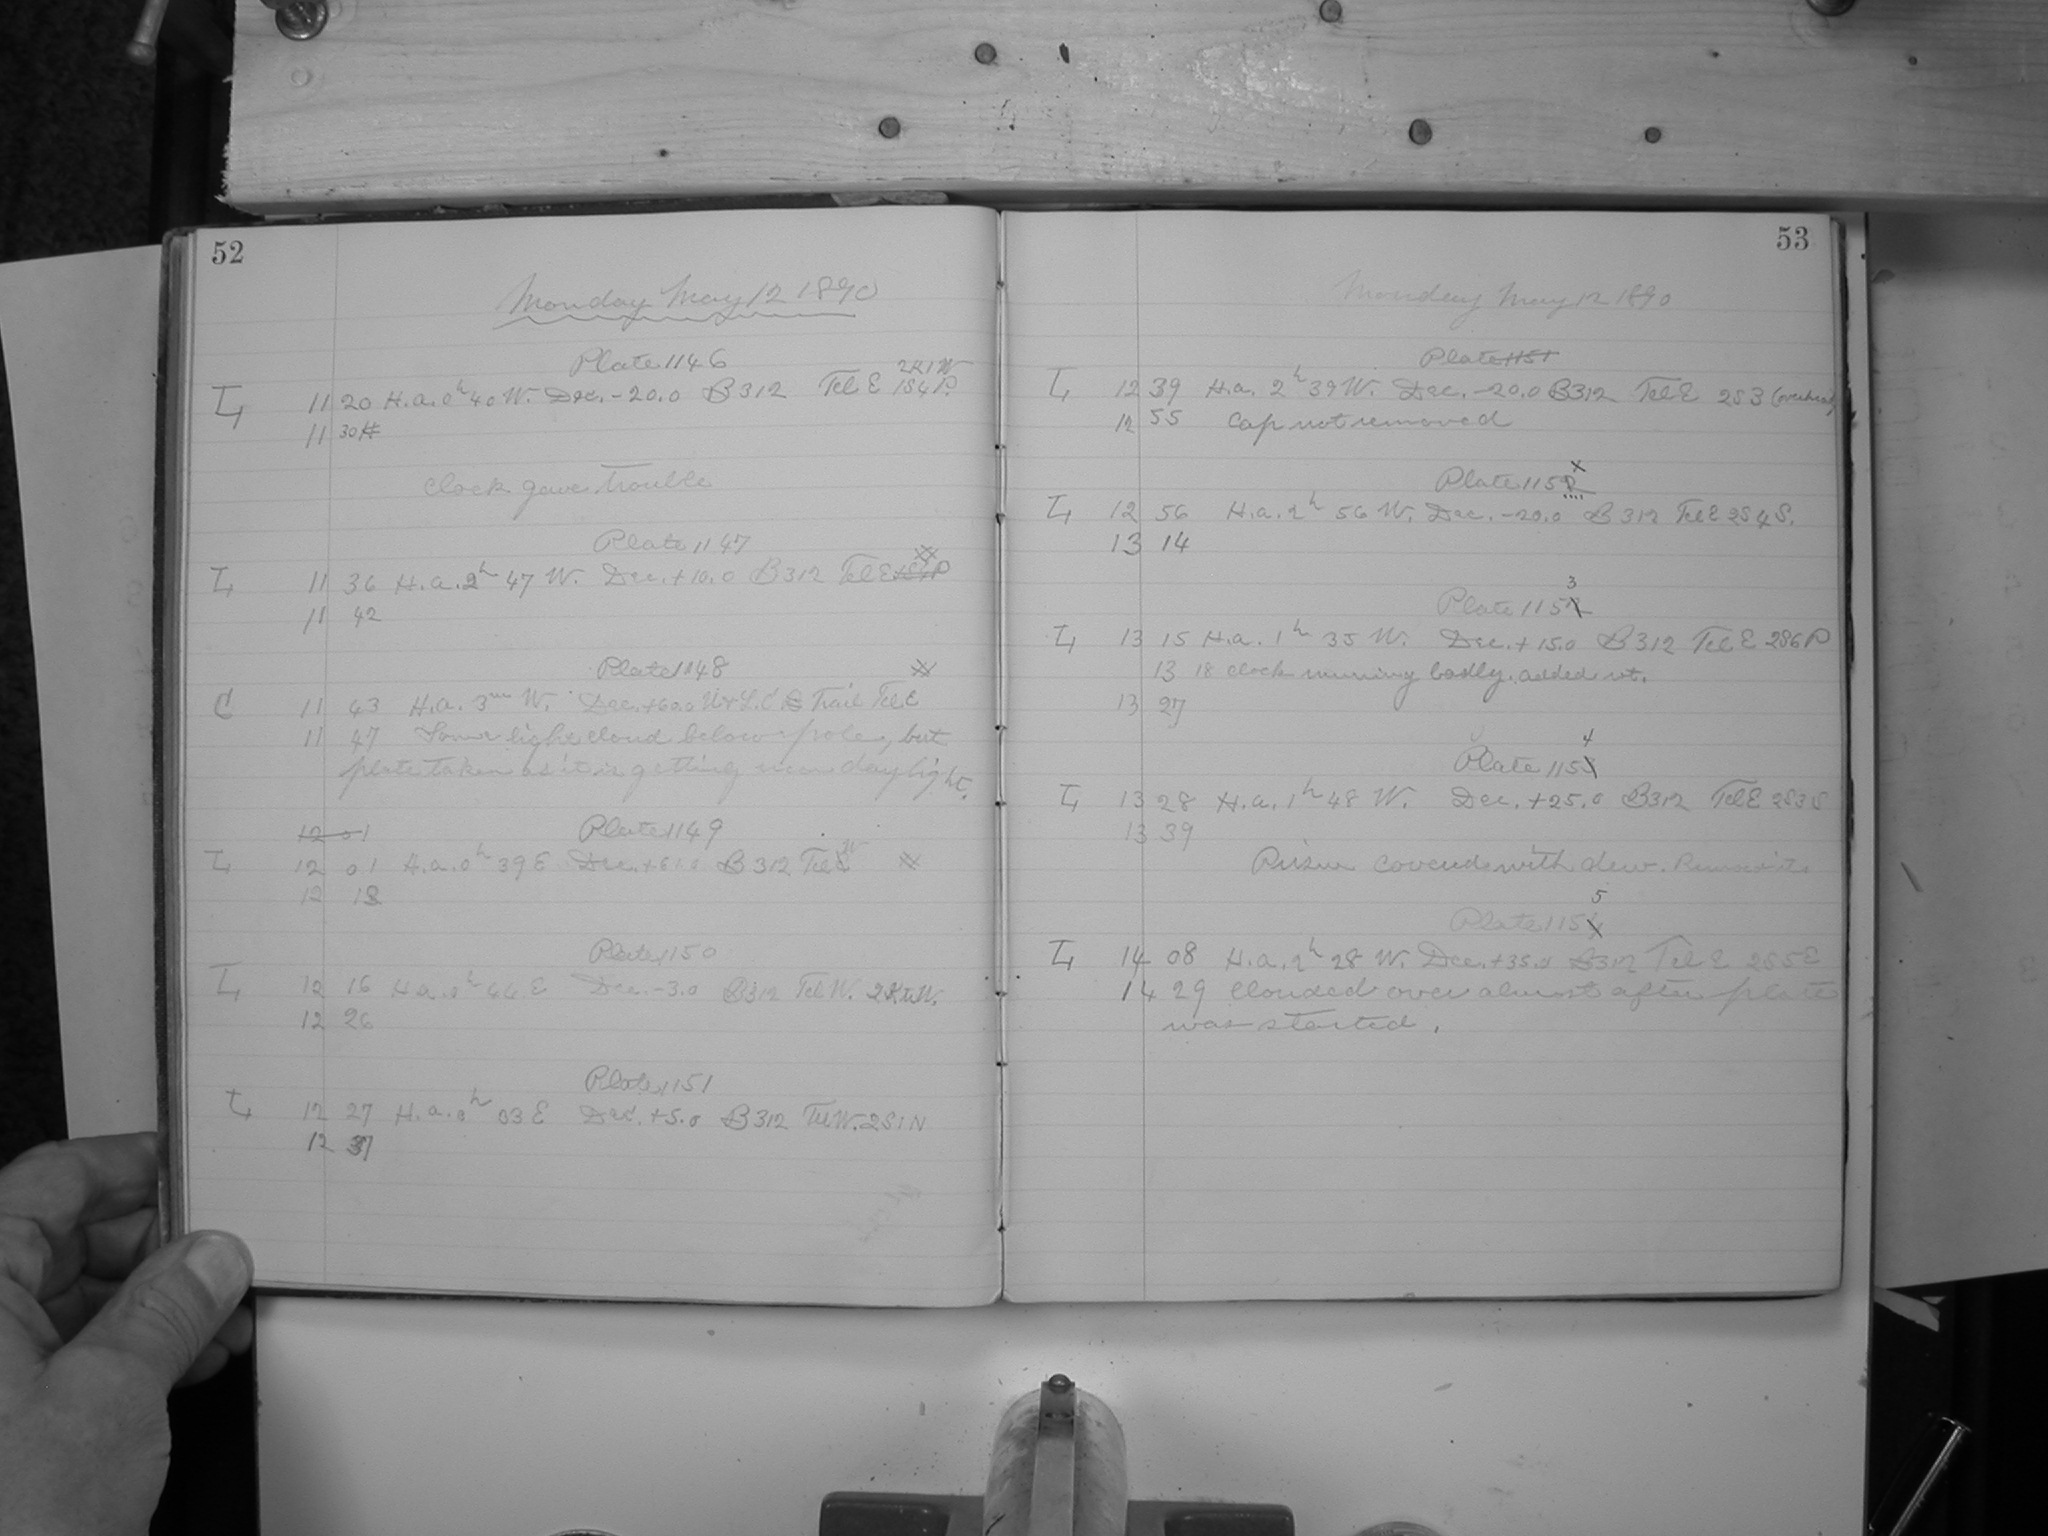 52
Monday May 12 1890
Plate 1146
L 11 20 H.a. 0h 40 W. Dec. -20.0 B 312 Tel E
11 30
Clock gave trouble
Plate 1147
L 11 36 H.a. 2h 47 W. Dec. +10.0 B 312 Tel E
11 42
Plate 1148
C 11 43 H.a. 3m W. Dec. +60.0 Trail Tel E
11 47 Some light cloud below pole, but
plate taken as it is getting daylight.
12 01 Plate 1149
L 12 01 H.a. 0h 39 E Dec. +61.0 B 312 Tel
12 13
Plate 1150
L 12 16 H.a. 0h 44 E Dec. -3.0 B 312 Tel W.
12 26
Plate 1151
L 12 27 H.a. 0h 03 E Dec. +5.0 B 312 Tel W. 2S1N
12 37
53
Monday May 12 1890
Plate 1151
L 12 39 H.a. 2h 39 W. Dec. -20.0 B312 Tel E 2S3
12 55 Cap not removed
Plate 1152
L 12 56 H.a. 2h 56 W. Dec. -20.0 B 312 Tel E 2S4S.
13 14
3
Plate 115
L 13 15 H.a. 1h 35 W. Dec. +15.0 B 312 Tel E 2S6P
13 18 clock running badly. added wt.
13 27
4
Plate 1153
L 13 28 H.a. 1h 48 W. Dec. +25.0 B312 Tel E 2S3S
13 39
Prism covered with dew.
5
Plate 1154
L 14 08 H.a. 2h 28 W. Dec. +35.0 B312 Tel E 2S5E
14 29 Clouded over almost after plate
was started.